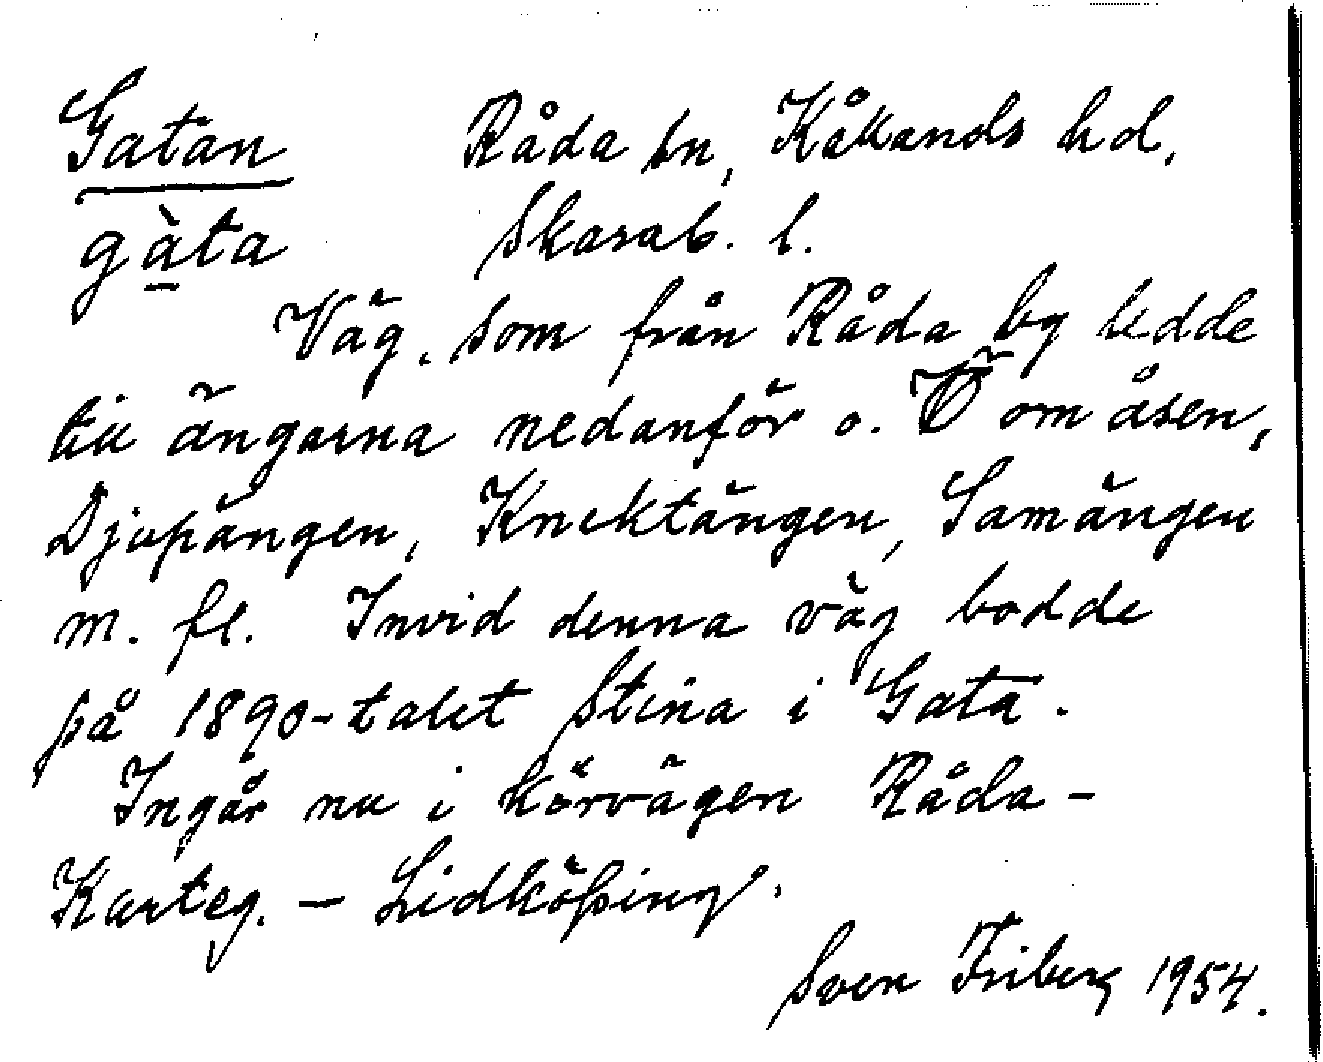 Gatan Råda sn, Kåkands hd,
gàta Skarab. l.
Väg, som från Råda by ledde
till ängarna nedanför o. Ö om åsen,
Djupängen, Knektängen, Samängen
m. fl. Invid denna väg bodde
på 1890-talet Stina i Gata.
Ingår nu i körvägen Råda -
Karteg. - Lidköping.
Sven Friberg 1954.